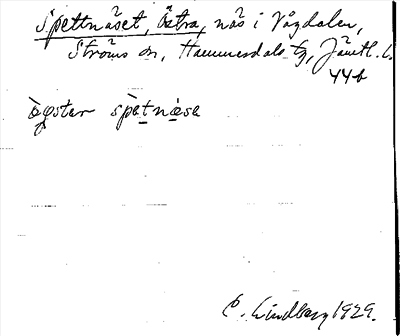 Spettnäset, Östra, näs i Vågdalen,
Ströms sn, Hammerdals tg, Jämtl. l.
44b
ø̀stər spe̊tnɛsə
C. Lindberg 1929.